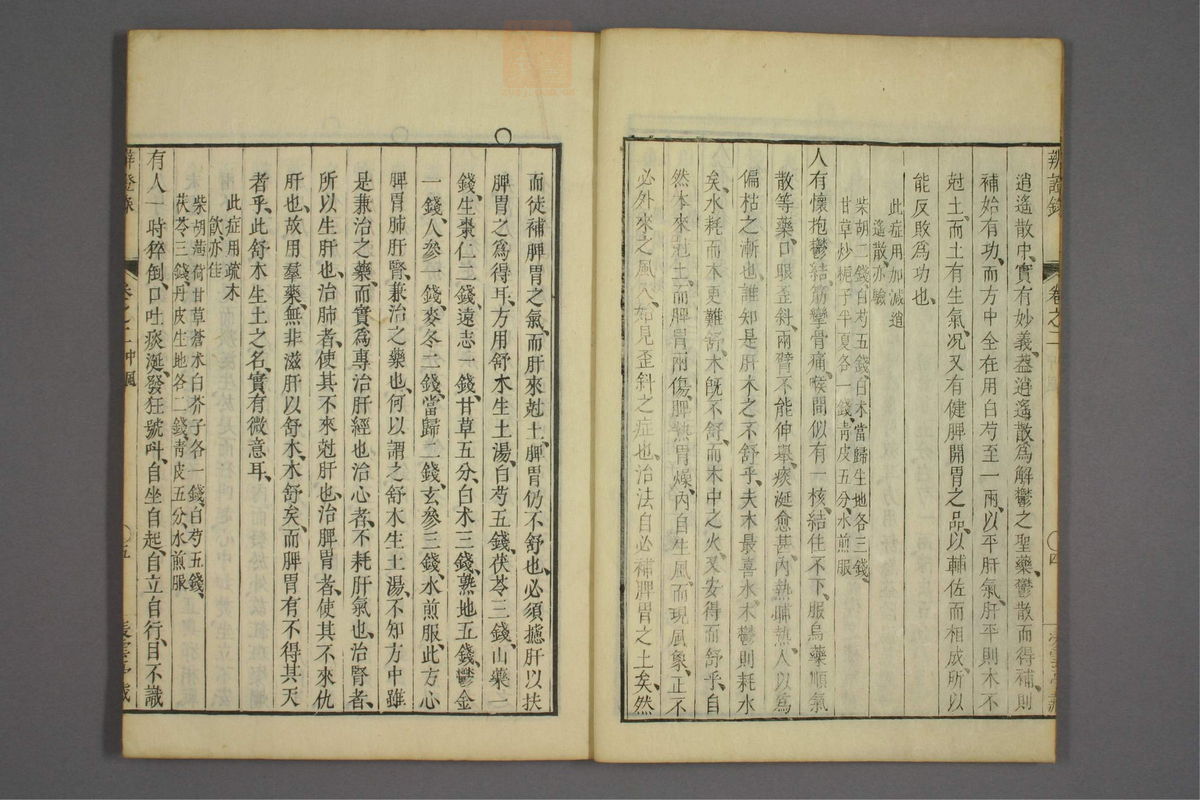 辨證錄
卷之二中風
四
逍遙散中實有妙義蓋逍遙散為解鬱之聖藥鬱散而得補則
補始有功而方中全在用白芍至一兩以平肝氣肝平則木不
尅土而土有生氣況又有健脾開胃之品以輔佐而相成所以
能反敗為功也
此症用加減逍
遙散亦驗
柴胡二錢白芍五錢白术當歸生地各三錢
甘草炒梔子半夏各一錢青皮五分水煎服
人有懷抱鬱結筋攣骨痛喉間似有一核結住不下服烏藥順氣
散等藥口眼歪斜兩臂不能伸舉痰涎愈甚內熱晡熱人以為
偏枯之漸也誰知是肝木之不舒乎夫木最喜水木鬱則耗水
矣水耗而木更難舒木既不舒而木中之火又安得而舒乎自
然木來尅土而脾胃兩傷脾熱胃燥內自生風而現風象正不
必外來之風入始見歪斜之症也治法自必補脾胃之土矣然
而徒補脾胃之氣而肝來尅土脾胃仍不舒也必須攄肝以扶
脾胃之為得耳方用舒木生土湯白芍五錢茯苓三錢山藥一
錢生棗仁二錢遠志一錢甘草五分白术三錢熟地五錢鬱金
一錢人參一錢麥冬二錢當歸二錢玄參三錢水煎服此方心
脾胃肺肝腎兼治之藥也何以謂之舒木生土湯不知方中雖
是兼治之藥而實為專治肝經也治心者不耗肝氣也治腎者
所以生肝也治肺者使其不來尅肝也治脾胃者使其不來仇
肝也故用羣藥無非滋肝以舒木木舒矣而脾胃有不得其天
者乎此舒木生土之名實有微意耳
此症用疏木
飲亦佳
柴胡薄荷甘草蒼术白芥子各一錢白芍五錢
茯苓三錢丹皮生地各二錢青皮五分水煎服
有人一時猝倒口吐痰涎發狂號叫自坐自起自立自行目不識
辨證錄
卷之二中風
五